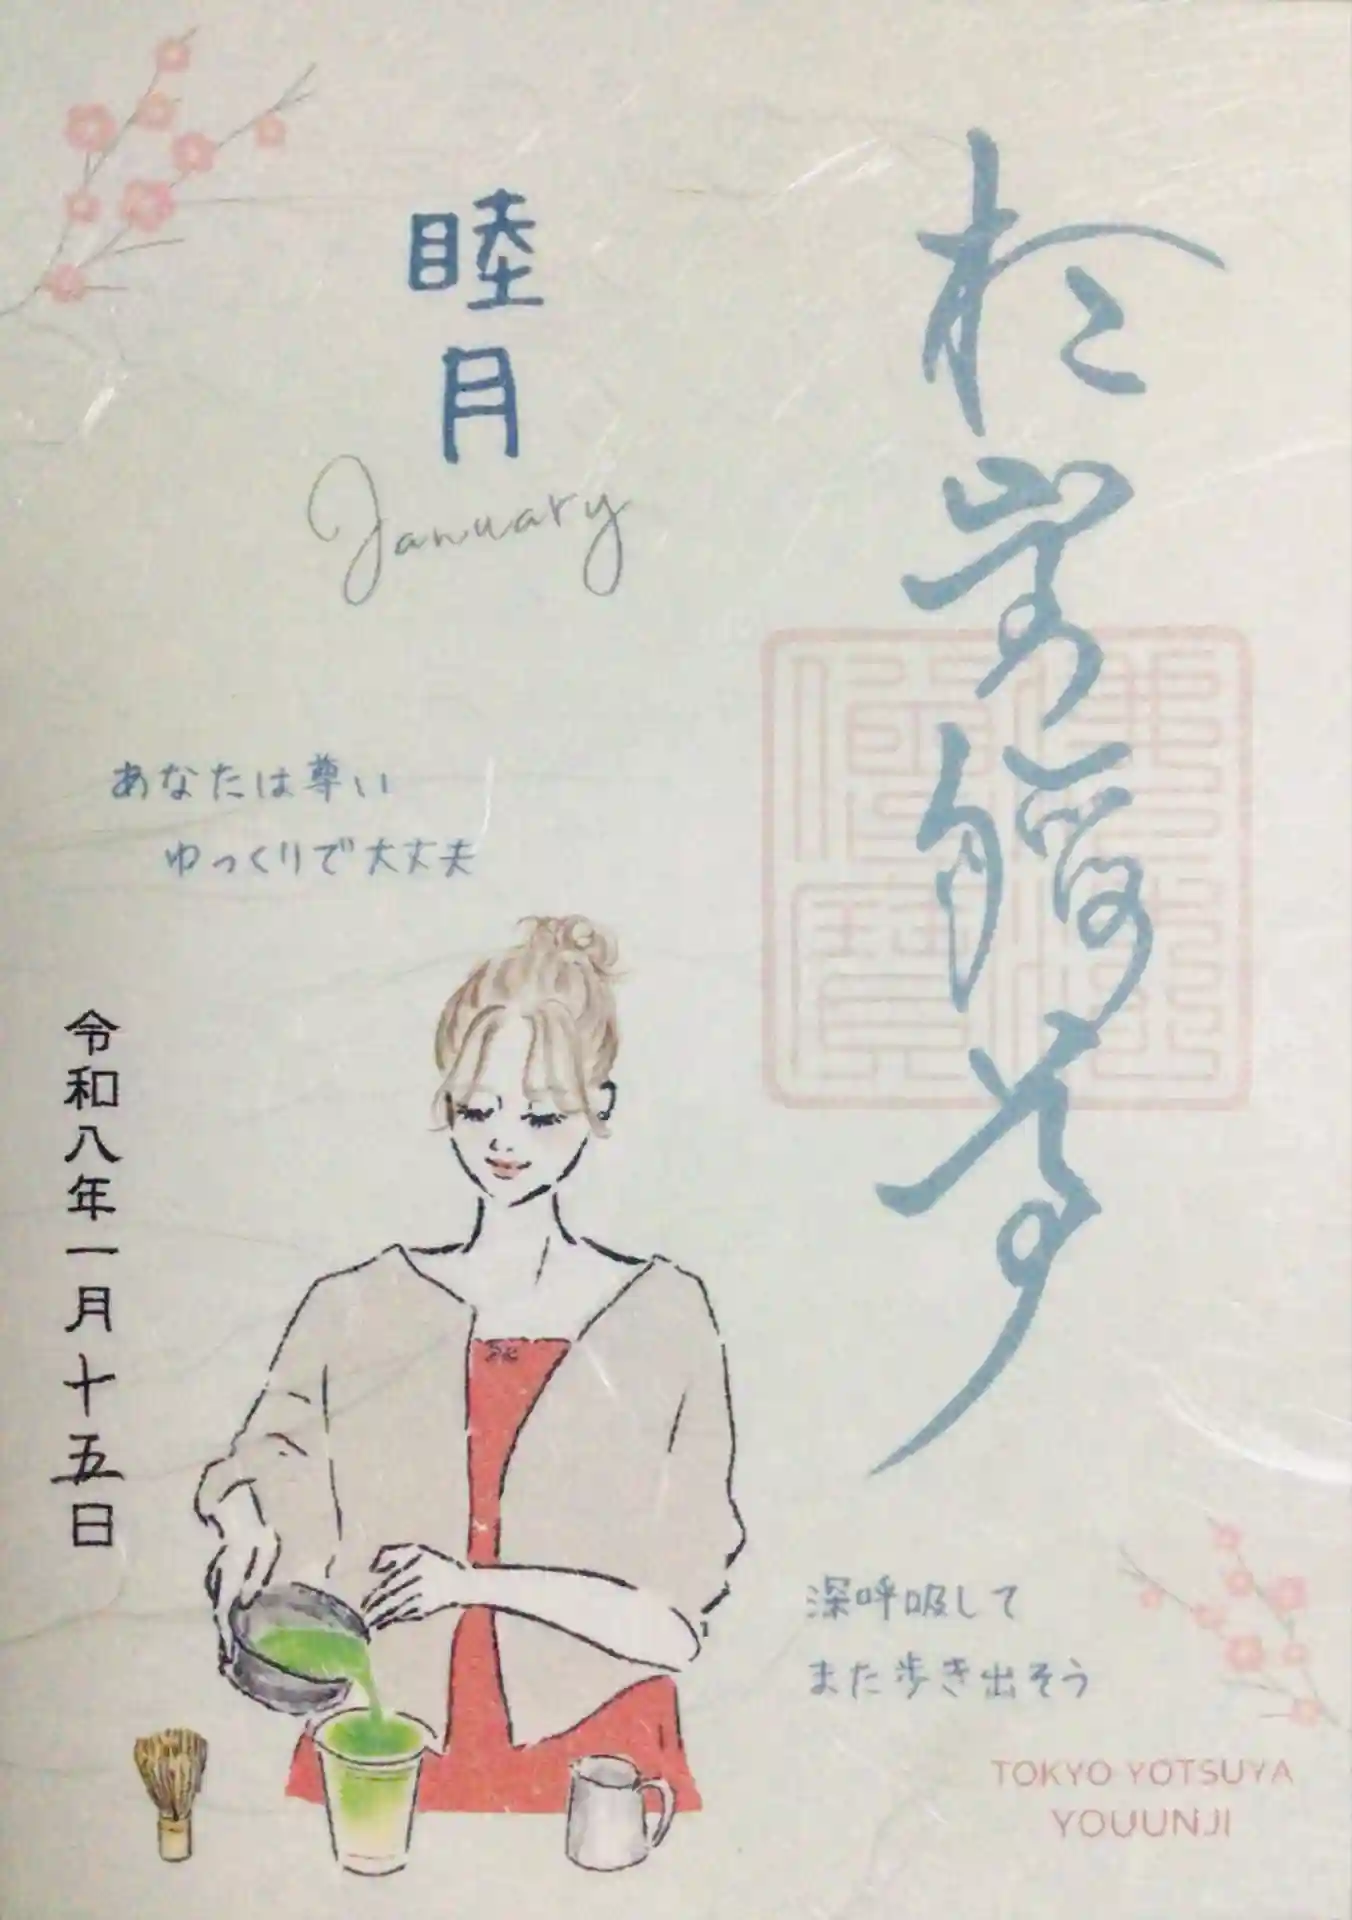 於岩稲荷
睦月
January
あなたは尊い
ゆっくりで大丈夫
令和八年一月十五日
深呼吸して
また歩き出そう
TOKYO YOTSUYA
YOUUNJI